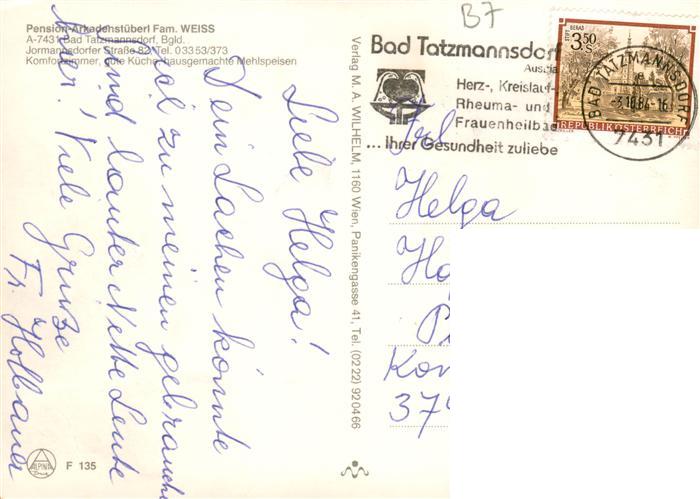 Pension-Arkadenstüberl Fam. WEISS
A-7431 Bad Tatzmannsdorf, Bgld.
Jormannsdorfer Straße 82, Tel. 03353/373
Komfortzimmer, gute Küche, hausgemachte Mehlspeisen
Liebe Helga!
Dein Lachen könnte
ich zu meinen gebrauchen
sind lauter Nette Leute
hier! Viele Grüße
Fr. Holbauer
ALPINA
F 135
Verlag M. A. WILHELM, 1160 Wien, Panikengasse 41, Tel. (0222) 920466
B7
Bad Tatzmannsdorf
Austria
Herz-, Kreislauf-
Rheuma- und
Frauenheilbad
... Ihrer Gesundheit zuliebe
STIFT GERAS
3.50
S
REPUBLIK ÖSTERREICH
BAD TATZMANNSDORF
-3.10.84-16
7431
Frl
Helga
Ho
P
Kor
379